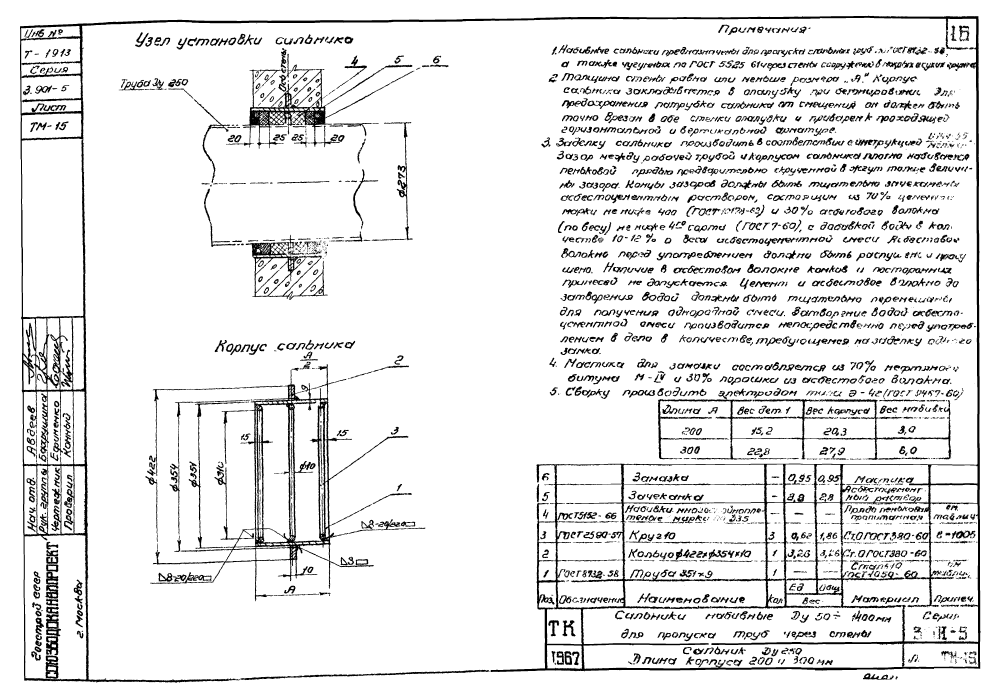 Инв №
Т-1913
Серия
3.901-5
Лист
ТМ-15
Нач. отв. Авдеев
Рук. группы
Чертежник Ефименко
Проверил
Госстрой СССР
СОЮЗВОДОКАНАЛПРОЕКТ
г. Москва
Узел установки сальника
Труба Ду 250
Ось стены
4 5 6
20 25 25 20
ф273
Корпус сальника
А
2
9
2
15 15
ф422
ф354
ф351
ф10
3
1
10
А
Примечания:
16
1. Набивные сальники предназначены для пропуска стальных труб по ГОСТ 8732-58,
а также чугунных по ГОСТ 5525-61 через стены сооружений в мокрых и сухих грунтах
2. Толщина стены равна или меньше размера „А". Корпус
сальника закладывается в опалубку при бетонировании. Для
предохранения патрубка сальника от смещения он должен быть
точно врезан в обе стенки опалубки и приварен к проходящей
горизонтальной и вертикальной арматуре.
3. Заделку сальника производить в соответствии с инструкцией
Зазор между рабочей трубой и корпусом сальника плотно набивается
пеньковой прядью предварительно скрученной в жгут толще величи-
ны зазора. Концы зазоров должны быть тщательно зачеканены
асбестоцементным раствором, состоящим из 70% цемента
марки не ниже 400 (ГОСТ 10178-62) и 30% асбестового волокна
(по весу) не ниже 4го сорта (ГОСТ 7-60), с добавкой воды в кол.
честве 10-12% о веса асбестоцементной смеси Асбестовое
волокно перед употреблением должно быть распушено и просу
шено. Наличие в асбестовом волокне комков и посторонних
примесей не допускается. Цемент и асбестовое волокно до
затворения водой должны быть тщательно перемешаны
для получения однородной смеси. Затворение водой асбесто-
цементной смеси производится непосредственно перед употреб-
лением в дело в количестве, требующемся на заделку одного
замка.
4. Мастика для замазки составляется из 70% нефтяного
битума М-IV и 30% порошка из асбестового волокна.
5. Сварку производить электродом типа Э-42 (ГОСТ 9467-60)
Длина А Вес дет. 1 Вес корпуса Вес набивки
200 15,2 20,3 3,0
300 22,8 27,9 6,0
6 Замазка — 0,95 0,95 Мастика
5 Зачеканка — 2,8 2,8 Асбестоцемент-ный раствор
4 ГОСТ 5152-66 Набивки Прядь пеньковая пропитанная см. таблиц.
3 ГОСТ 2590-57 Круг 10 3 0,62 1,86 Ст.0 ГОСТ 380-60 ℓ=1005
2 Кольцо ф422×ф354×10 1 3,26 3,26 Ст.0 ГОСТ 380-60
1 ГОСТ 8732-58 Труба 351×9 1 — Сталь 10 ГОСТ 1050-60 см. таблиц.
Поз. Обозначение Наименование Кол Ед. Общ. Вес Материал Примеч.
ТК
1967
Сальники набивные Ду 50÷1400мм
для пропуска труб через стены
Серия
3.901-5
Сальник Ду 250
Длина корпуса 200 и 300 мм
Л. ТМ-15